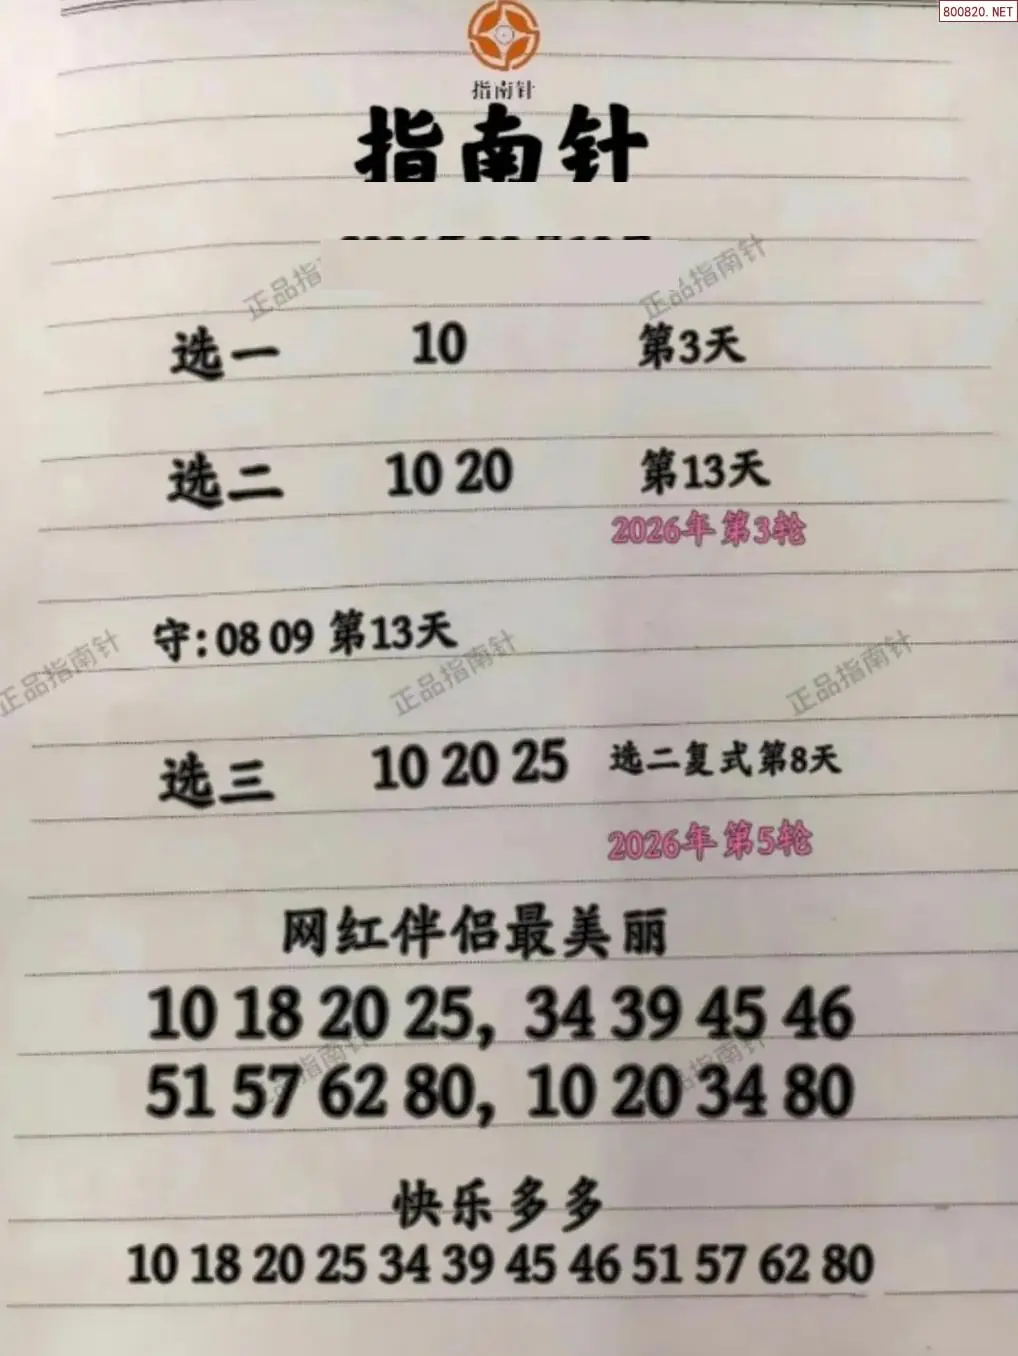 800820.NET
指南针
指南针
正品指南针
选一 10 第3天
选二 10 20 第13天
2026年 第3轮
守: 08 09 第13天
正品指南针 正品指南针 正品指南针
选三 10 20 25 选二复式第8天
2026年 第5轮
网红伴侣最美丽
10 18 20 25, 34 39 45 46
51 57 62 80, 10 20 34 80
快乐多多
10 18 20 25 34 39 45 46 51 57 62 80